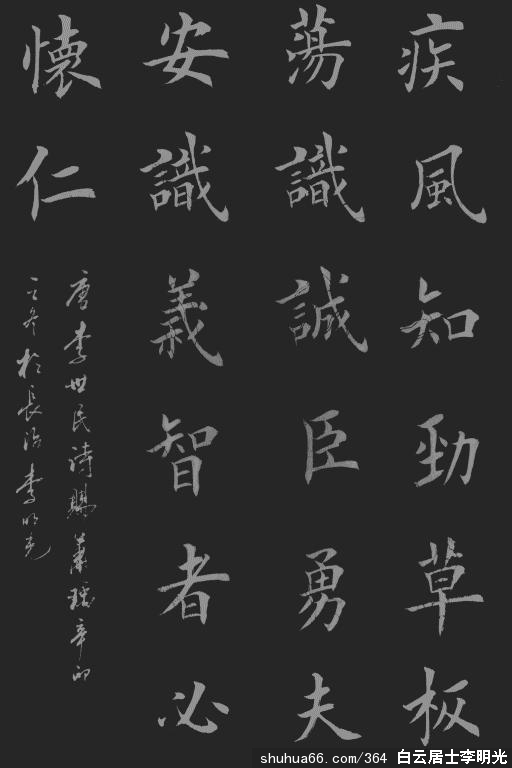 疾風知勁草板
蕩識誠臣勇夫
安識義智者必
懷仁
唐李世民詩賜蕭瑀辛卯
之冬於長治李明光
shuhua66.com/364 白云居士李明光